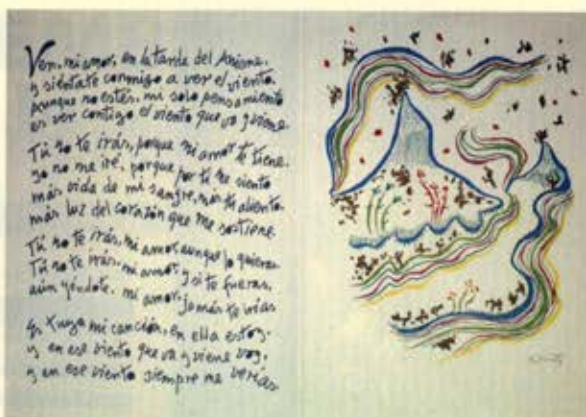 Ven, mi amor, en la tarde del Aniene
y siéntate conmigo a ver el viento.
Aunque no estés, mi solo pensamiento
es ver contigo el viento que va y viene.
Tú no te irás, porque mi amor te tiene.
Yo no me iré, porque por ti me siento
más vida de mi sangre, más tu aliento,
más luz del corazón que me sostiene.
Tú no te irás, mi amor, aunque lo quieras.
Tú no te irás, mi amor, y si te fueras,
aún yéndote, mi amor, jamás te irías.
Es tuya mi canción, en ella estoy.
Y en ese viento que va y viene voy.
y en ese viento siempre me verías.